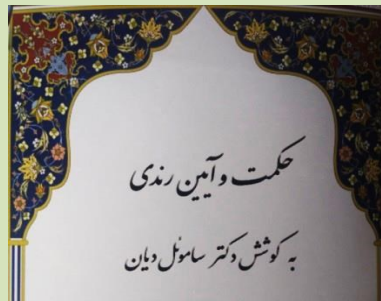 حکمت و آیین رندی
به کوشش دکتر ساموئل دیان